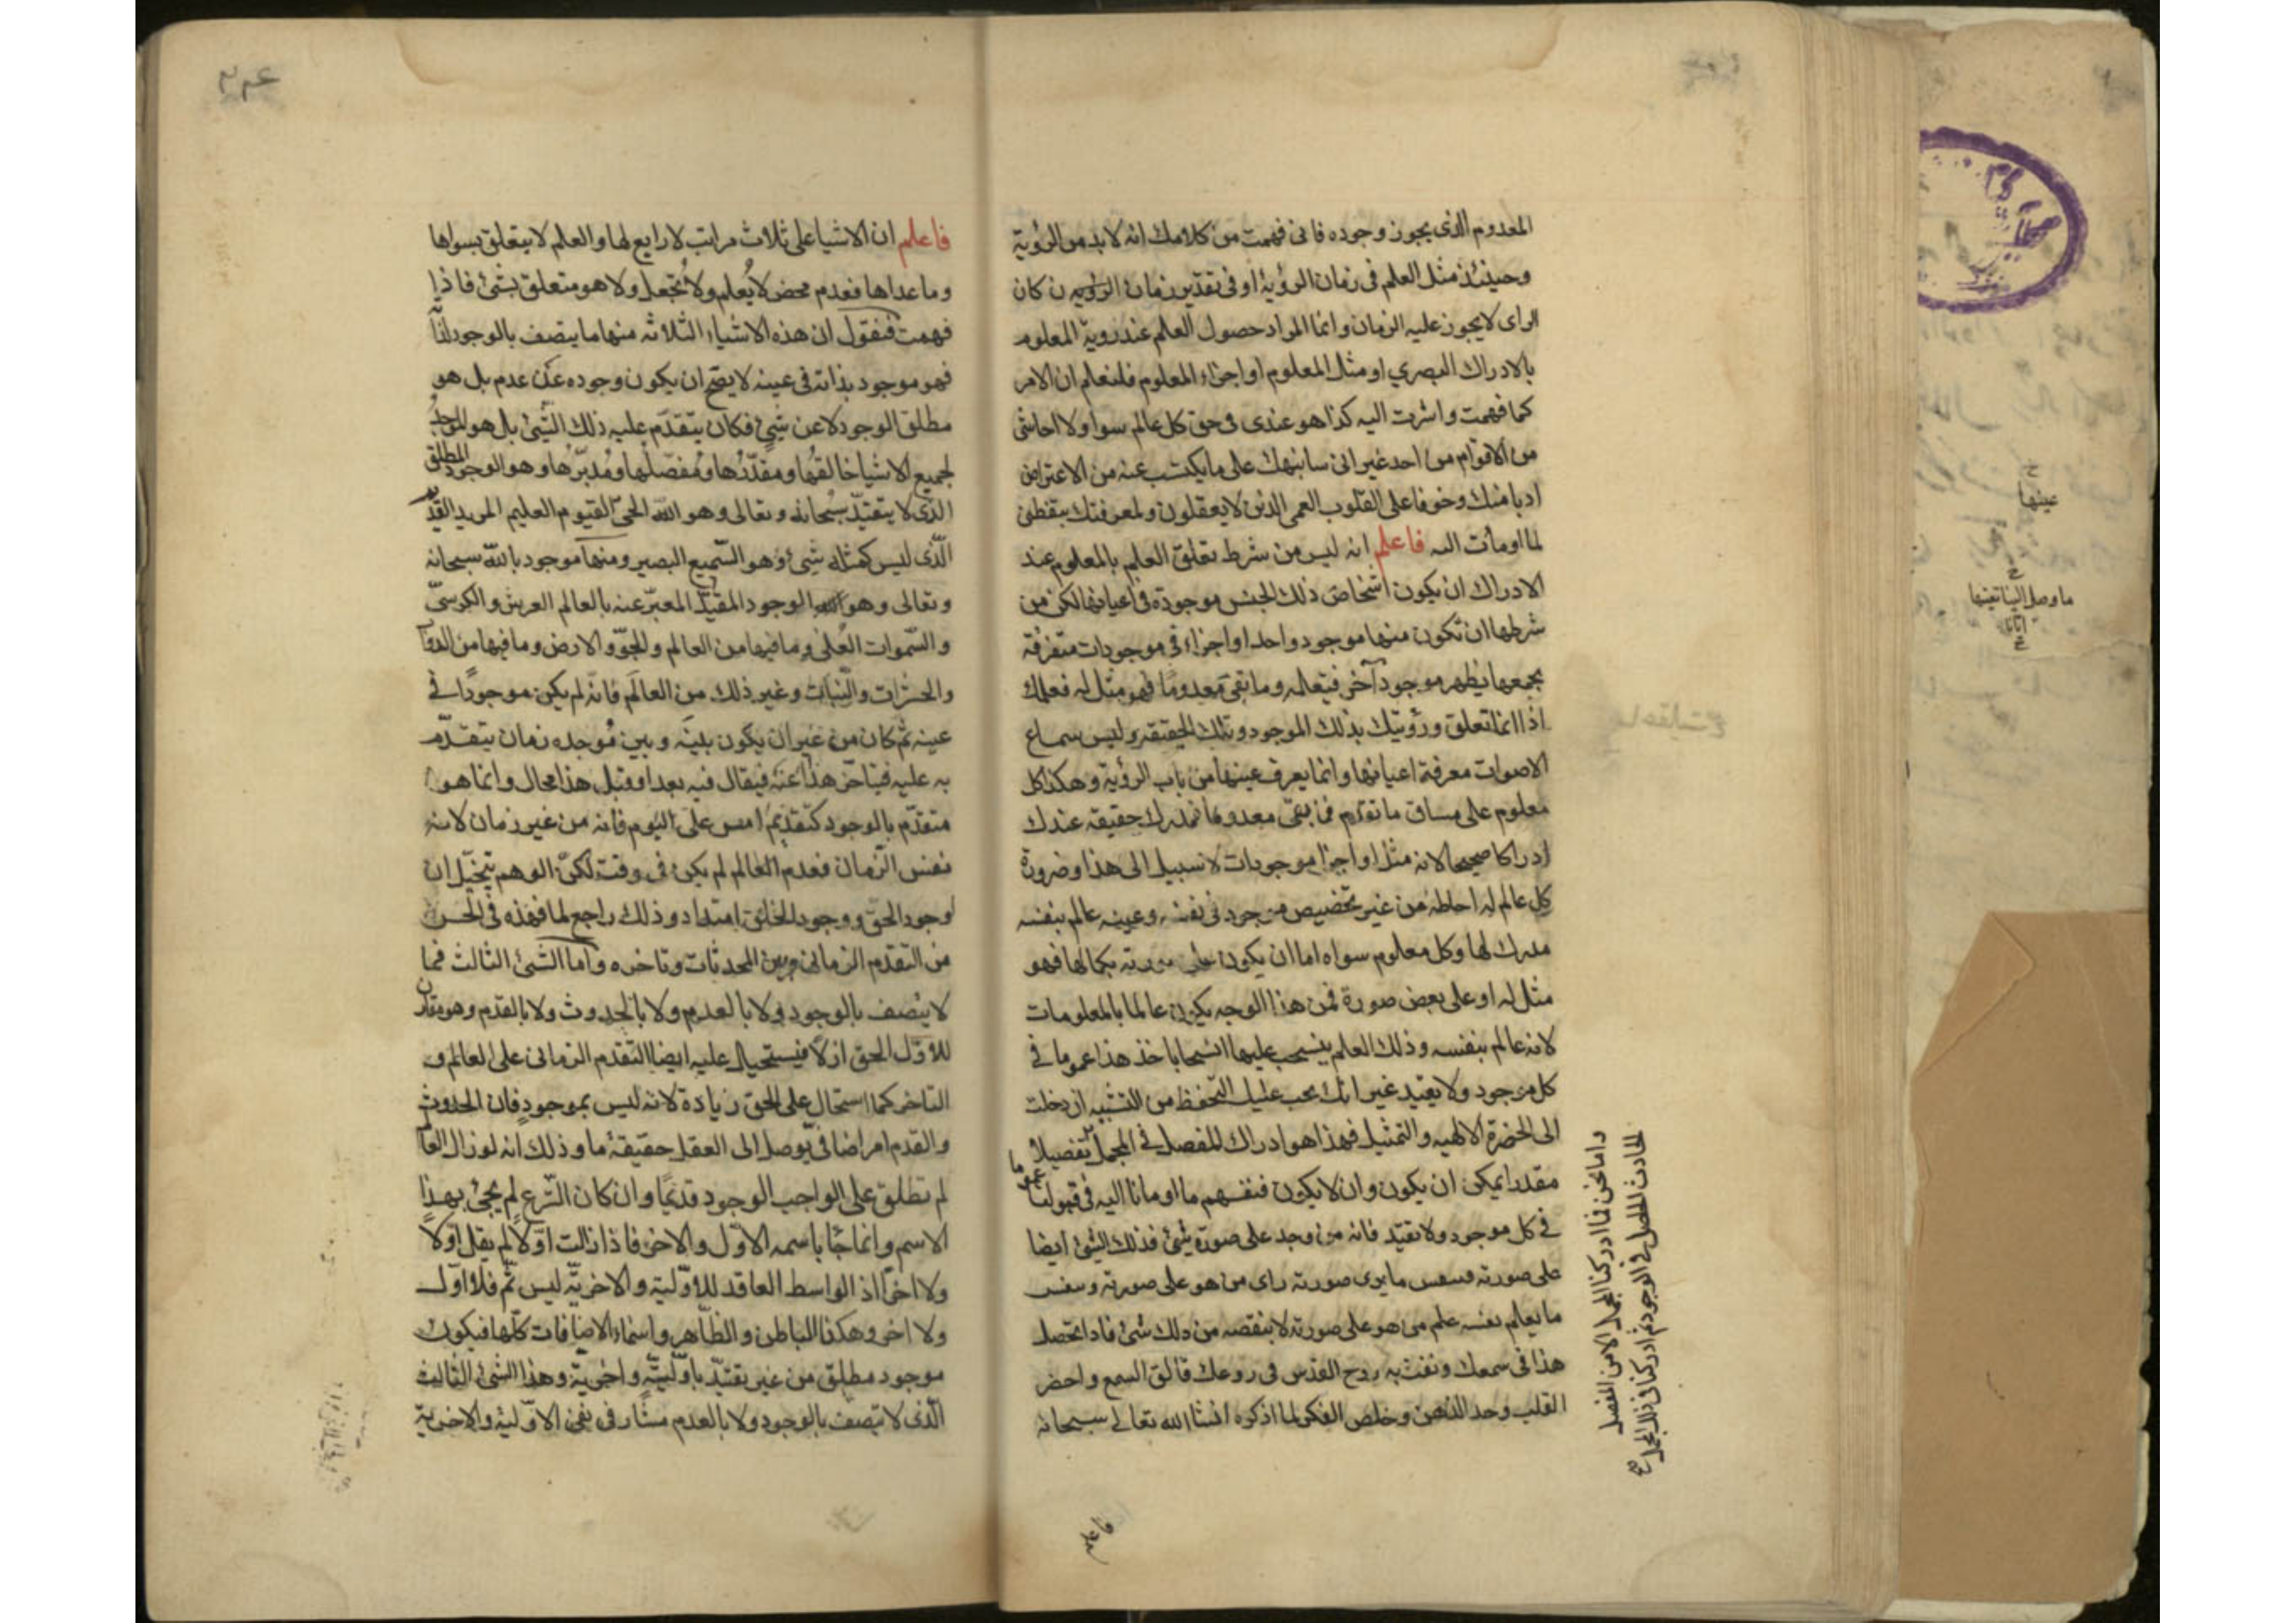 المعدوم الذى يجوز وجوده فانى فهمت من كلامك انه لابد من الرؤية
وحينئذ مثل العلم فى زمان الرؤية او فى تقدير زمان الرؤية ن كان
الراى لايجوز عليه الزمان وانما المراد حصول العلم عند روية المعلوم
بالادراك البصري او مثل المعلوم او اجزاء المعلوم فلتعلم ان الامر
كما فهمت واشرت اليه كذا هو عندى فى حق كل عالم سوا ولا احاشى
من الاقوام من احد غير انى سانبهك على مايكتسب عنه من الاعتراض
ادبا منك وخوفا على القلوب العمى الذين لايعقلون ولمعرفتك بتقطنى
لما اومأت اليه فاعلم انه ليس من شرط تعلق العلم بالمعلوم عند
الادراك ان يكون اشخاص ذلك الجنس موجودة فى اعيانها لكن من
شرطها ان تكون منها موجود واحد او اجزاء فى موجودات متفرقة
يجمعها يظهر موجود آخر فيتعلمه وما بقى معدوما فهو مثل له فعلمك
اذا انما تعلق ورؤيتك بذلك الموجود وتلك الحقيقة وليس سماع
الاصوات معرفة اعيانها وانما يعرف عينها من باب الرؤية وهكذا كل
معلوم على مساق ما تقدم فمن بقى معدوما تدرك حقيقته عندك
ادراكا صحيحا لانه مثل او اجزا موجودات لا سبيل الى هذا وضرورة
كل عالم له احاطة من غير تخصيص موجود فى نفسه وعينه عالم بنفسه
مدرك لها وكل معلوم سواه اما ان يكون على صورته بكمالها فهو
مثل له او على بعض صورة فمن هذا الوجه يكون عالما بالمعلومات
لانه عالم بنفسه وذلك العلم ينسحب عليها انسحابا خذ هذا عموما فى
كل موجود ولا يقيد غير انك يجب عليك التحفظ من التشبيه ان دخلت
الى الحضرة الالهيه والتمثيل فهذا هو ادراك للمفصل فى المجمل تفصيلا
مقدرا يمكن ان يكون وان لا يكون فتفهم ما اومانا اليه فى قبولنا عموما
فى كل موجود ولا تقيد فانه من وجد على صورة شئ فذلك الشئ ايضا
على صورته فبنفس مايرى صورته راى من هو على صورته وبنفس
مايعلم نفسه علم من هو على صورته لاينقصه من ذلك شئ فاذا تحصل
هذا فى سمعك ونفث به روح القدس فى روعك فالق السمع واحضر
القلب وحد الذهن وخلص الفكر لما اذكره انشا الله تعالى سبحانه
واما نحن فما ادركنا المجمل الا من المفصل
الحادث الحاصل فى الوجود ثم ادركنا فى ذلك المجمل صح
فاعلم
فاعلم ان الاشيا على ثلاث مراتب لا رابع لها والعلم لايتعلق بسواها
وماعداها فعدم محض لايُعلم ولا يُجهل ولا هو متعلق بشئ فاذا
فهمت فنقول ان هذه الاشياء الثلاثه منها مايتصف بالوجود لذاته
فهو موجود بذاته فى عينه لا يصح ان يكون وجوده عن عدم بل هو
مطلق الوجود لا عن شئ فكان يتقدّم عليه ذلك الشئ بل هو الموجد
لجميع الاشيا خالقها ومقدّرها ومُفصّلها ومُدبّرها وهو الوجود المطلق
الذى لا يتقيّد سُبحانه وتعالى وهو الله الحىّ القيّوم العليم المريد القدير
الّذى ليس كمثله شئ وهو السّميع البصير ومنها موجود بالله سبحانه
وتعالى وهو الوجود المقيّد المعبّر عنه بالعالم العرش والكرسىّ
والسّموات العُلى وما فيها من العالم والجوّ والارض وما فيها من الدوآب
والحشرات والنّبات وغير ذلك من العالَم فانّه لم يكن موجودًا فى
عينه ثم كان من غير ان يكون بينَه وبين مُوجده زمان يتقدّم
به عليه فيتاخّر هذا عنه فيقال فيه بعد او قبل هذا محال وانما هو
متقدّم بالوجود كتقدّم امس على اليوم فانه من غير زمان لانه
نفس الزّمان فعدم العالم لم يكن فى وقت لكنّ الوهم يتخيّل ان
وجود الحق ووجود الخلق امتداد وذلك راجع لما فهذه فى الحس
من التقدّم الزمانى وبين المحدثات وتاخره وامّا الشئ الثالث فما
لا يتّصف بالوجود ولا بالعدم ولا بالحدوث ولا بالقدم وهو مقارن
للاوّل الحق ازلا فيستحيل عليه ايضا التّقدم الزمانى على العالم و
التاخر كما استحال على الحق زيادة لانه ليس بموجود فان الحدوث
والقدم امر اضافى يوصل الى العقل حقيقة ما وذلك انه لو زال العالم
لم نطلق على الواجب الوجود قديمًا وان كان الشّرع لم يجئ بهذا
الاسم وانما جا باسمه الاوّل والاخر فاذا زالت اوّلا لم يقل اوّلا
ولا اخرًا اذ الواسط العاقد للاوّليّة والاخريّة ليس ثَمّ فلا اوّل
ولا اخر وهكذا الباطن والظّاهر واسماء الاضافات كلّها فيكون
موجود مطلق من غير تقييد باوّليّة واخريّة وهذا الشئ الثالث
الّذى لا يتصف بالوجود ولا بالعدم مشارفى نفى الاوّلية والاخرية
عينها
ماوصل الينا تعينها